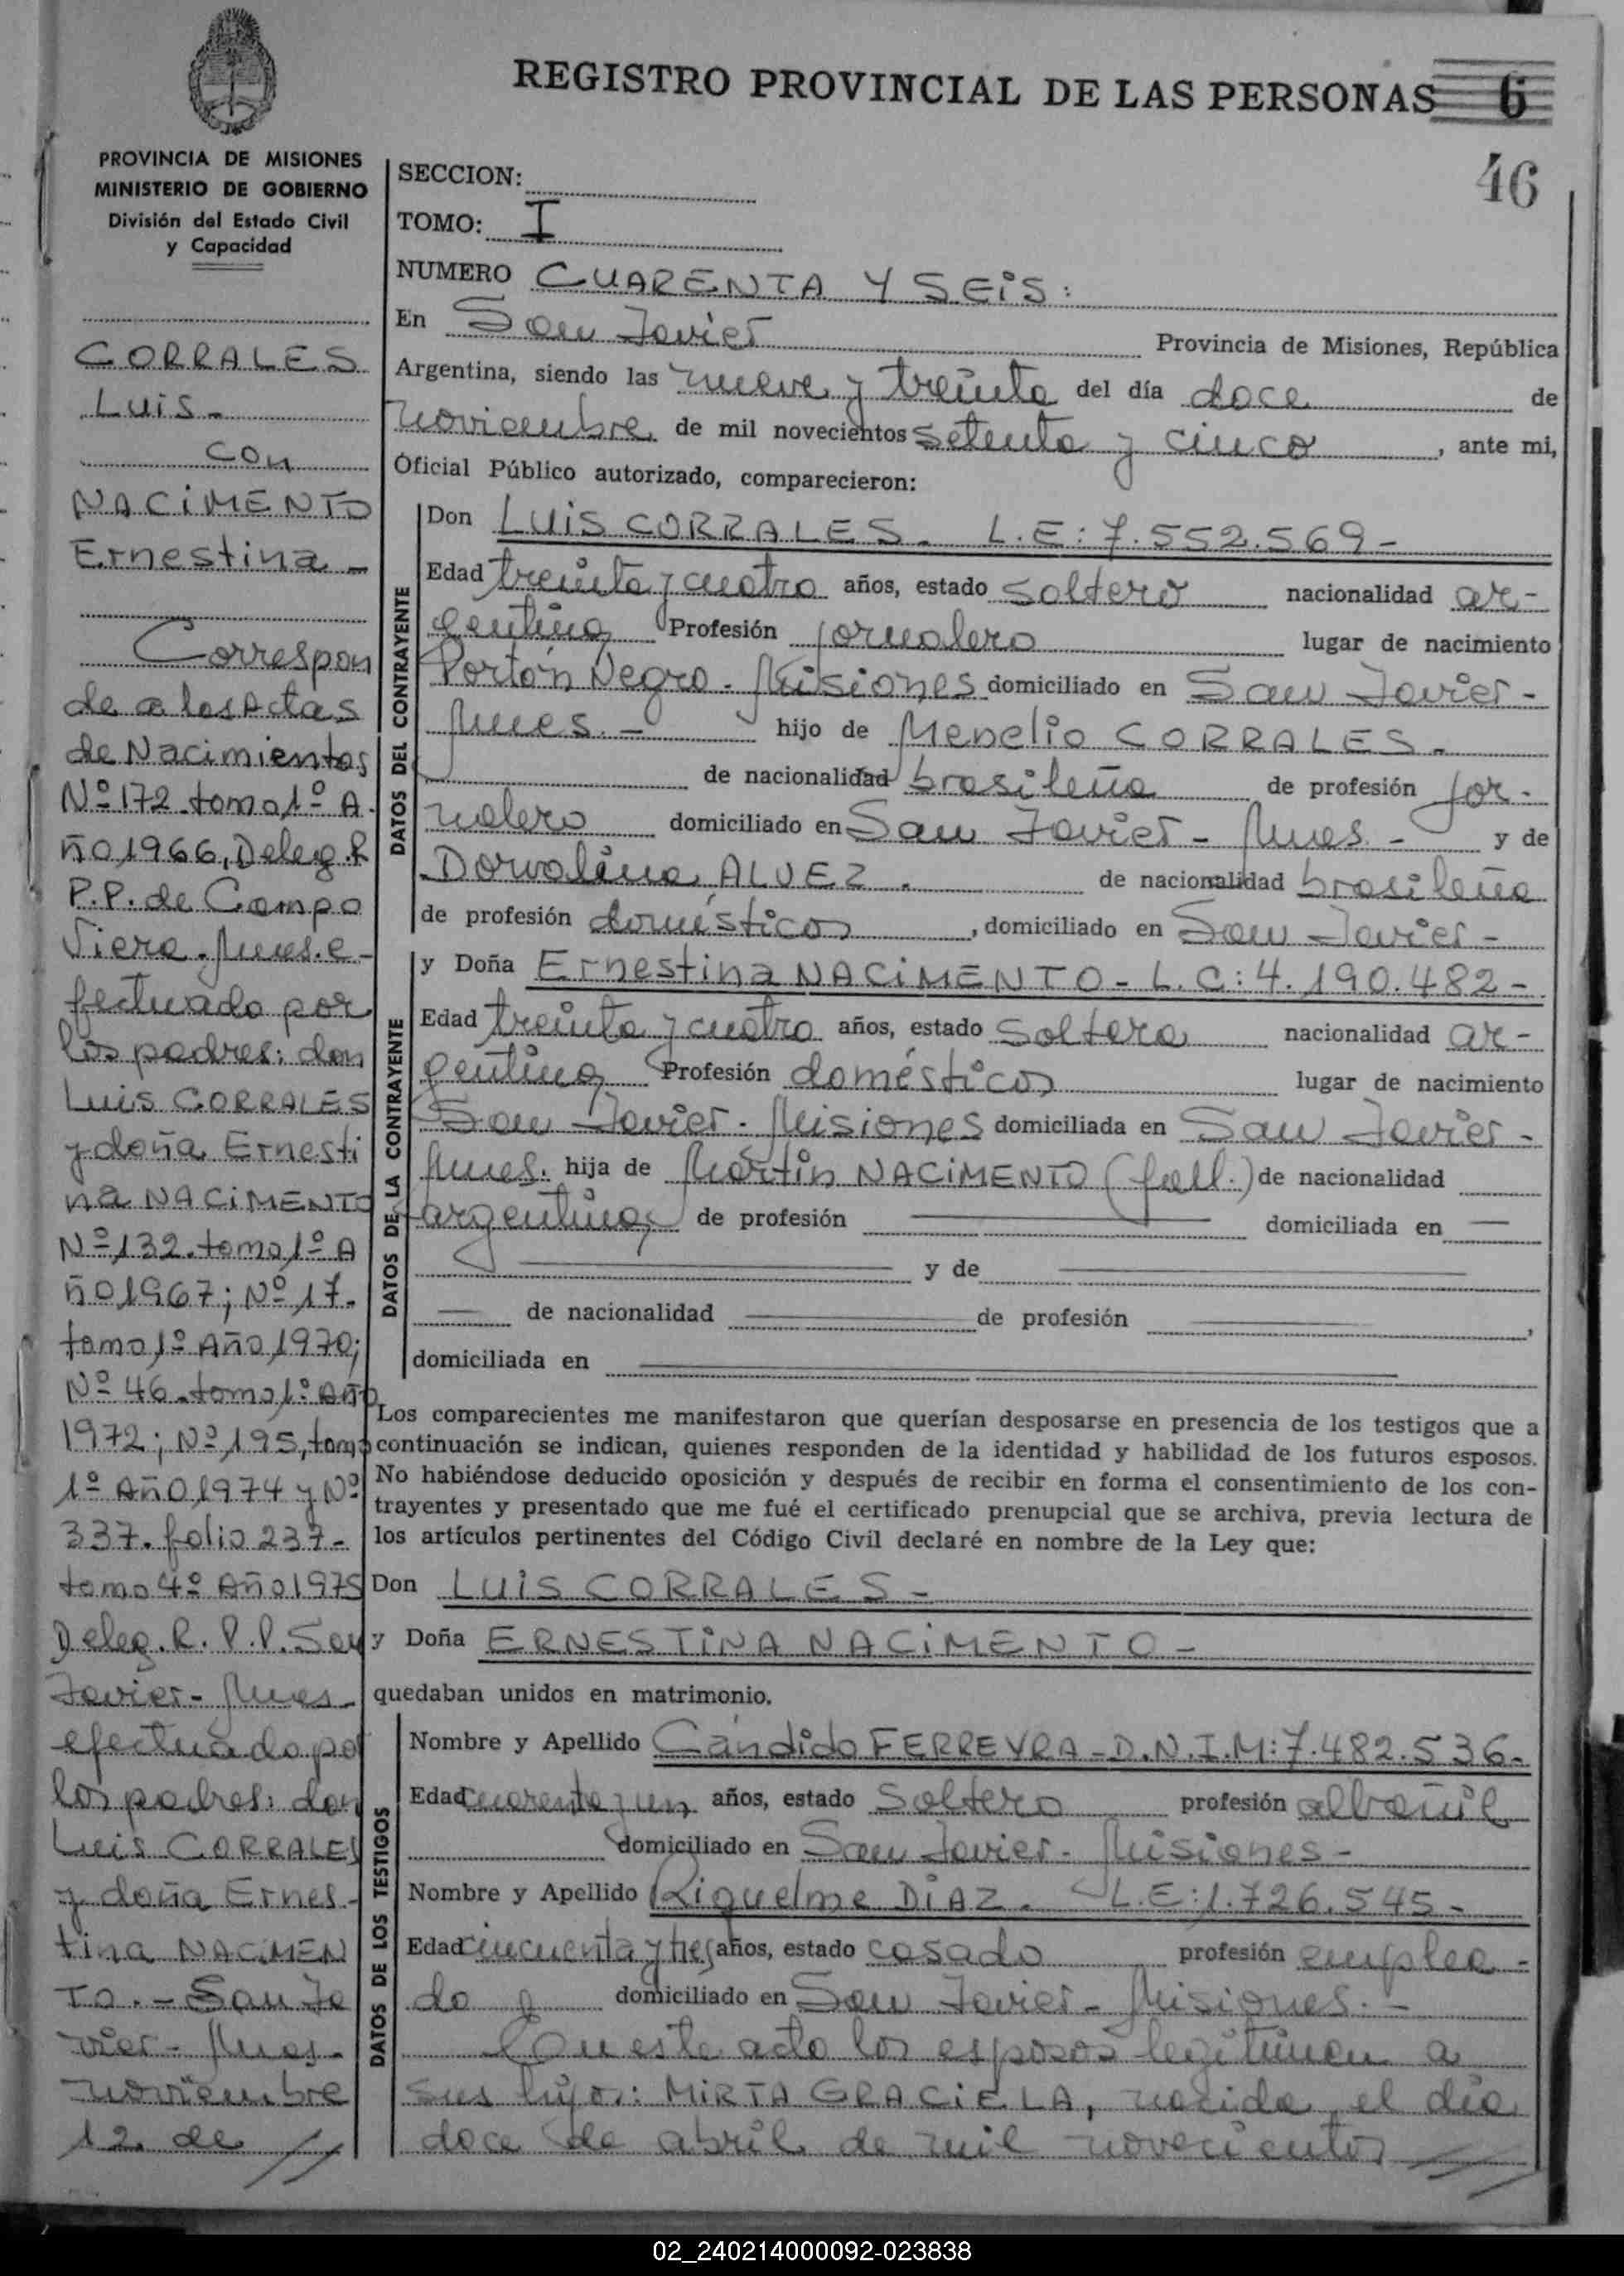 REGISTRO PROVINCIAL DE LAS PERSONAS 6
46
PROVINCIA DE MISIONES
MINISTERIO DE GOBIERNO
División del Estado Civil
y Capacidad
CORRALES
Luis -
con
NACIMENTO
Ernestina -
Correspon
de a las Actas
de Nacimientos
Nº 172 tomo 1º A
ño 1966, Deleg. R
P.P. de Campo
Viera - Mnes. e-
fectuado por
los padres: don
Luis CORRALES
y doña Ernesti
na NACIMENTO
Nº 132 tomo 1º A
ño 1967; Nº 17.
tomo 1º Año 1970;
Nº 46 - tomo 1º Año
1972; Nº 195, tomo
1º Año 1974 y Nº
337. folio 237 -
tomo 4º Año 1975
Deleg. R. P. P. San
Javier - Mnes
efectuado po
los padres: don
Luis CORRALES
y doña Ernes-
tina NACIMEN
TO. - San Ja
vier - Mnes. -
noviembre
12 de //
SECCION:
TOMO: I
NUMERO CUARENTA Y SEIS:
En San Javier Provincia de Misiones, República
Argentina, siendo las nueve y treinta del día doce de
noviembre de mil novecientos setenta y cinco, ante mi,
Oficial Público autorizado, comparecieron:
DATOS DEL CONTRAYENTE
Don LUIS CORRALES - L.E: 7.552.569 -
Edad treinta y cuatro años, estado soltero nacionalidad ar-
gentina Profesión jornalero lugar de nacimiento
Portón Negro - Misiones domiciliado en San Javier -
Mnes. - hijo de Menelio CORRALES -
de nacionalidad brasileña de profesión jor-
nalero domiciliado en San Javier - Mnes. - y de
Dorvalina ALVEZ. de nacionalidad brasileña
de profesión domésticos, domiciliado en San Javier -
DATOS DE LA CONTRAYENTE
y Doña Ernestina NACIMENTO - L.C: 4.190.482 -
Edad treinta y cuatro años, estado soltera nacionalidad ar-
gentina Profesión domésticos lugar de nacimiento
San Javier - Misiones domiciliada en San Javier -
Mnes. hija de Martín NACIMENTO (fall.) de nacionalidad
argentina de profesión domiciliada en
y de
de nacionalidad de profesión ,
domiciliada en
Los comparecientes me manifestaron que querían desposarse en presencia de los testigos que a
continuación se indican, quienes responden de la identidad y habilidad de los futuros esposos.
No habiéndose deducido oposición y después de recibir en forma el consentimiento de los con-
trayentes y presentado que me fué el certificado prenupcial que se archiva, previa lectura de
los artículos pertinentes del Código Civil declaré en nombre de la Ley que:
Don LUIS CORRALES -
y Doña ERNESTINA NACIMENTO -
quedaban unidos en matrimonio.
DATOS DE LOS TESTIGOS
Nombre y Apellido Cándido FERREYRA - D.N.I.M: 7.482.536 -
Edad cuarenta y un años, estado soltero profesión albañil
domiciliado en San Javier - Misiones -
Nombre y Apellido Riquelme DIAZ. L.E: 1.726.545 -
Edad cincuenta y tres años, estado casado profesión emplea-
do domiciliado en San Javier - Misiones. -
En este acto los esposos legitiman a
sus hijos: MIRTA GRACIELA, nacida el día
doce de abril de mil novecientos //
02_240214000092-023838